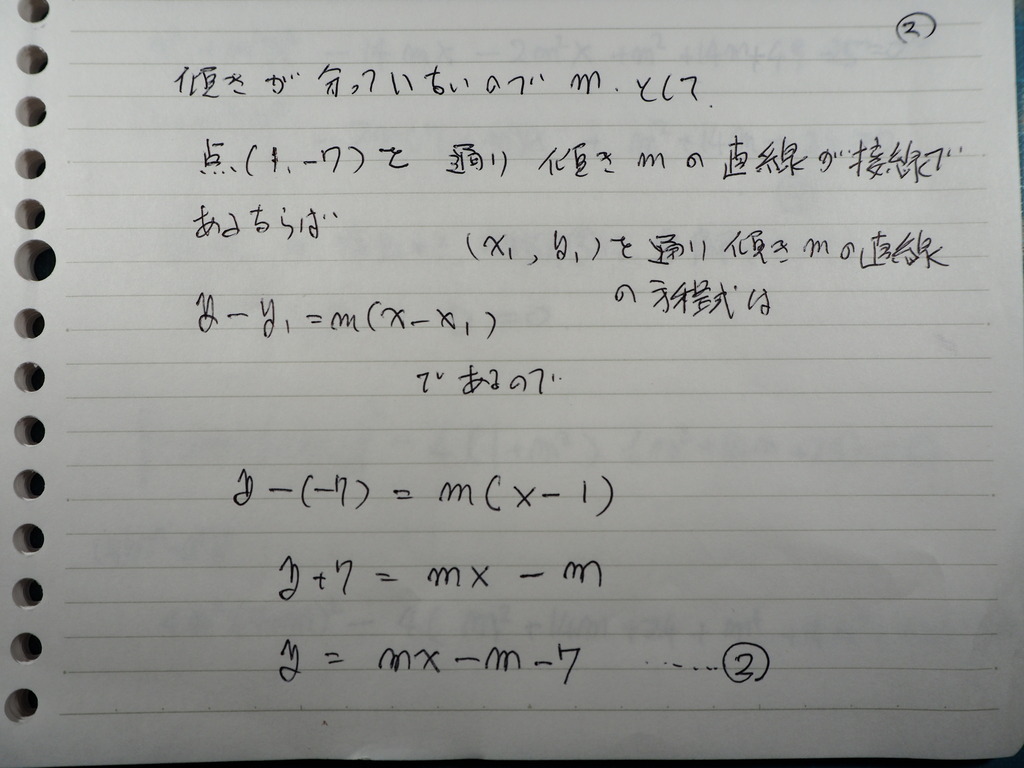 ②
傾きが 分っていないので m.として
点(1,-7)を 通り 傾き m の 直線が接線で
あるならば
(x₁, y₁)を通り 傾き m の直線
の方程式は
y-y₁=m(x-x₁)
であるので
y-(-7) = m(x-1)
y+7 = mx - m
y = mx-m-7 ……②